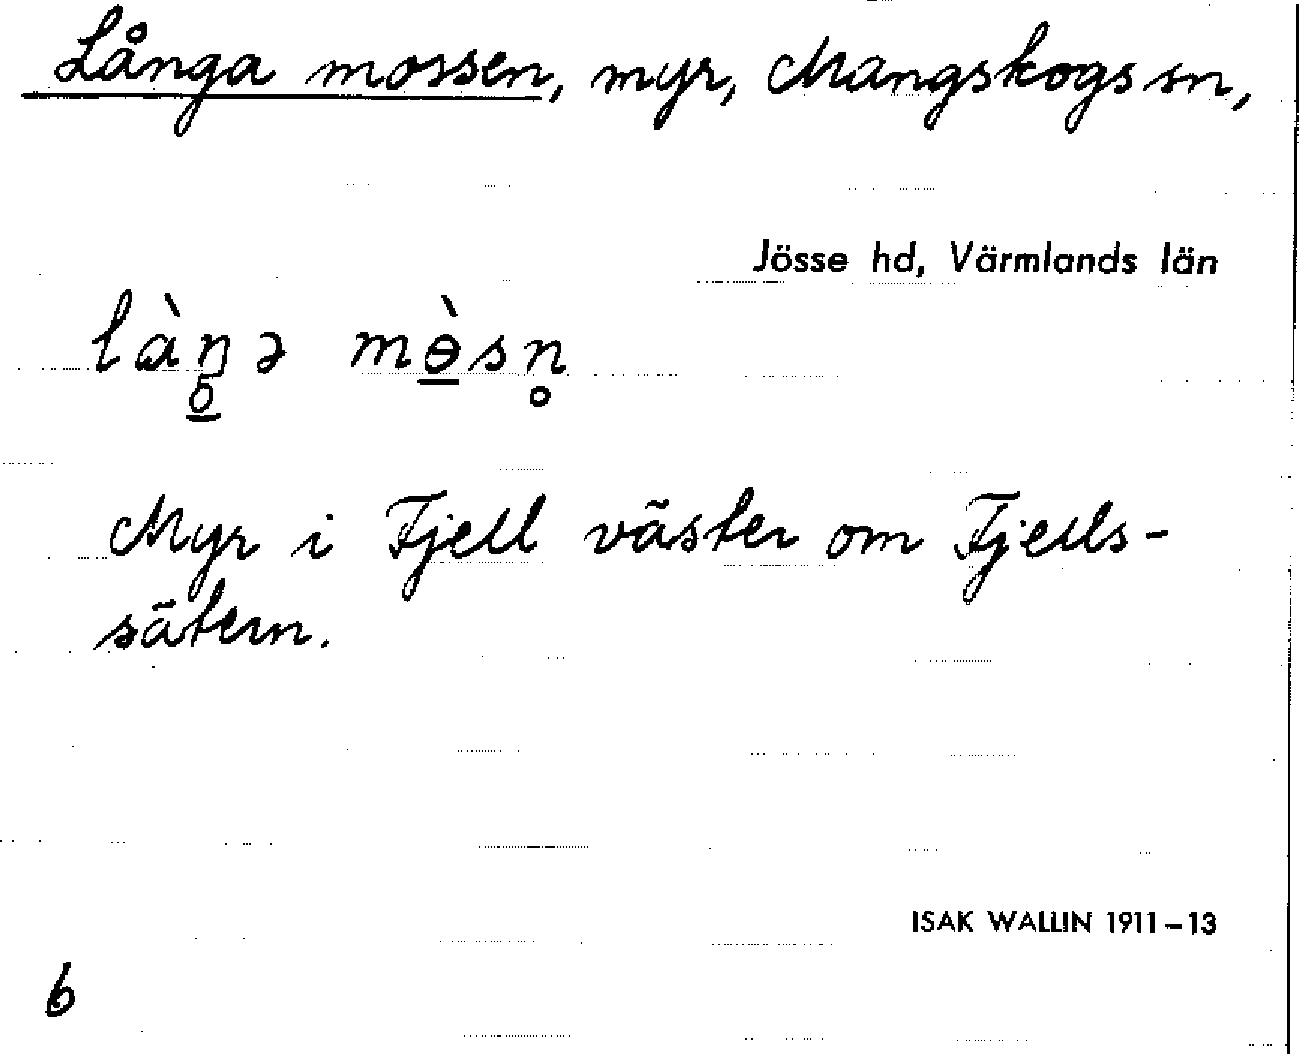 Långa mossen, myr, Mangskogs sn,
Jösse hd, Värmlands län
làŋ̥ə mɵ̠̀sn̥
Myr i Fjell väster om Fjells-
sätern.
ISAK WALLIN 1911–13
6